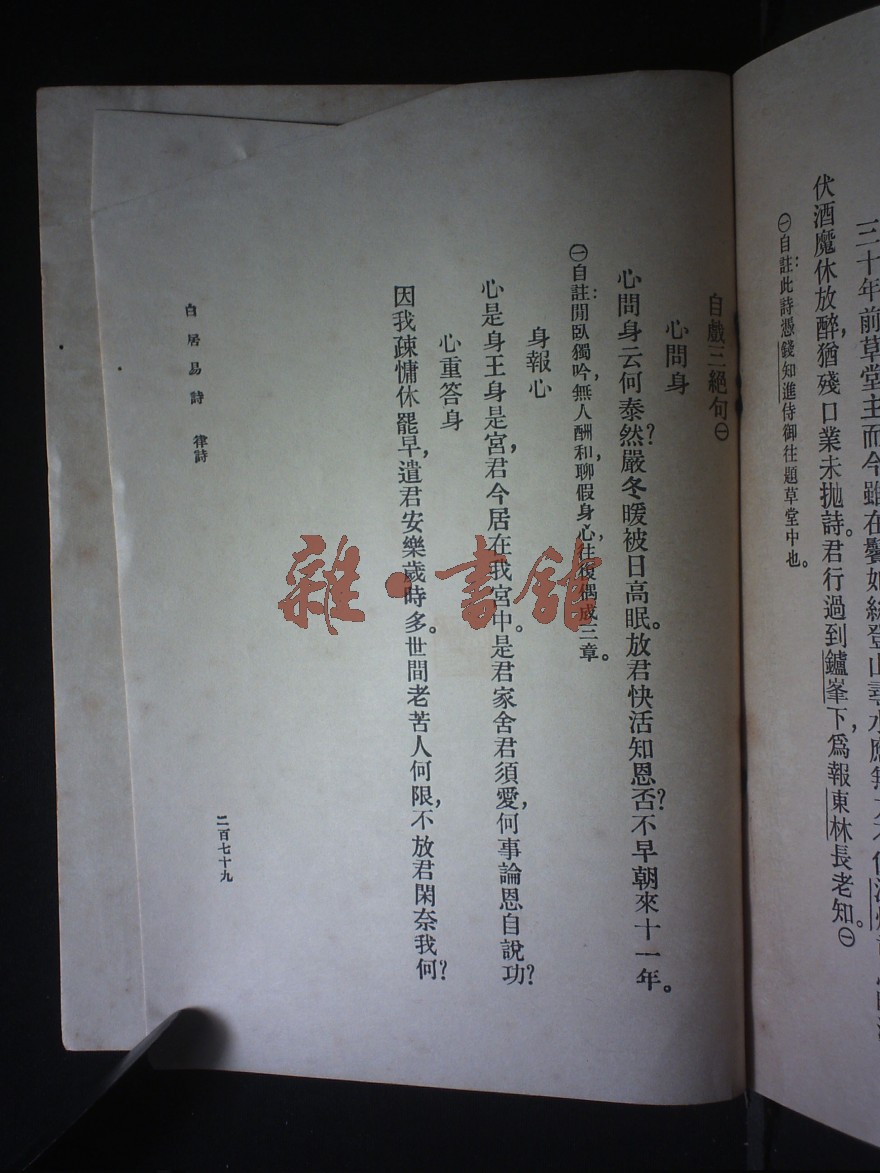 三十年前草堂主而今雖在鬢如絲登山尋水應無
伏酒魔休放醉，猶殘口業未拋詩。君行過到鑪峯下，爲報東林長老知。㊀
㊀自註：此詩憑錢知進侍御往題草堂中也。
自戲三絕句㊀
心問身
心問身云何泰然？嚴冬暖被日高眠。放君快活知恩否？不早朝來十一年。
㊀自註：閒臥獨吟，無人酬和，聊假身心，往復偶成三章。
身報心
心是身王身是宮，君今居在我宮中。是君家舍君須愛，何事論恩自說功？
心重答身
因我疎慵休罷早，遣君安樂歲時多。世間老苦人何限，不放君閑奈我何？
白居易詩 律詩
二百七十九
雜·書館